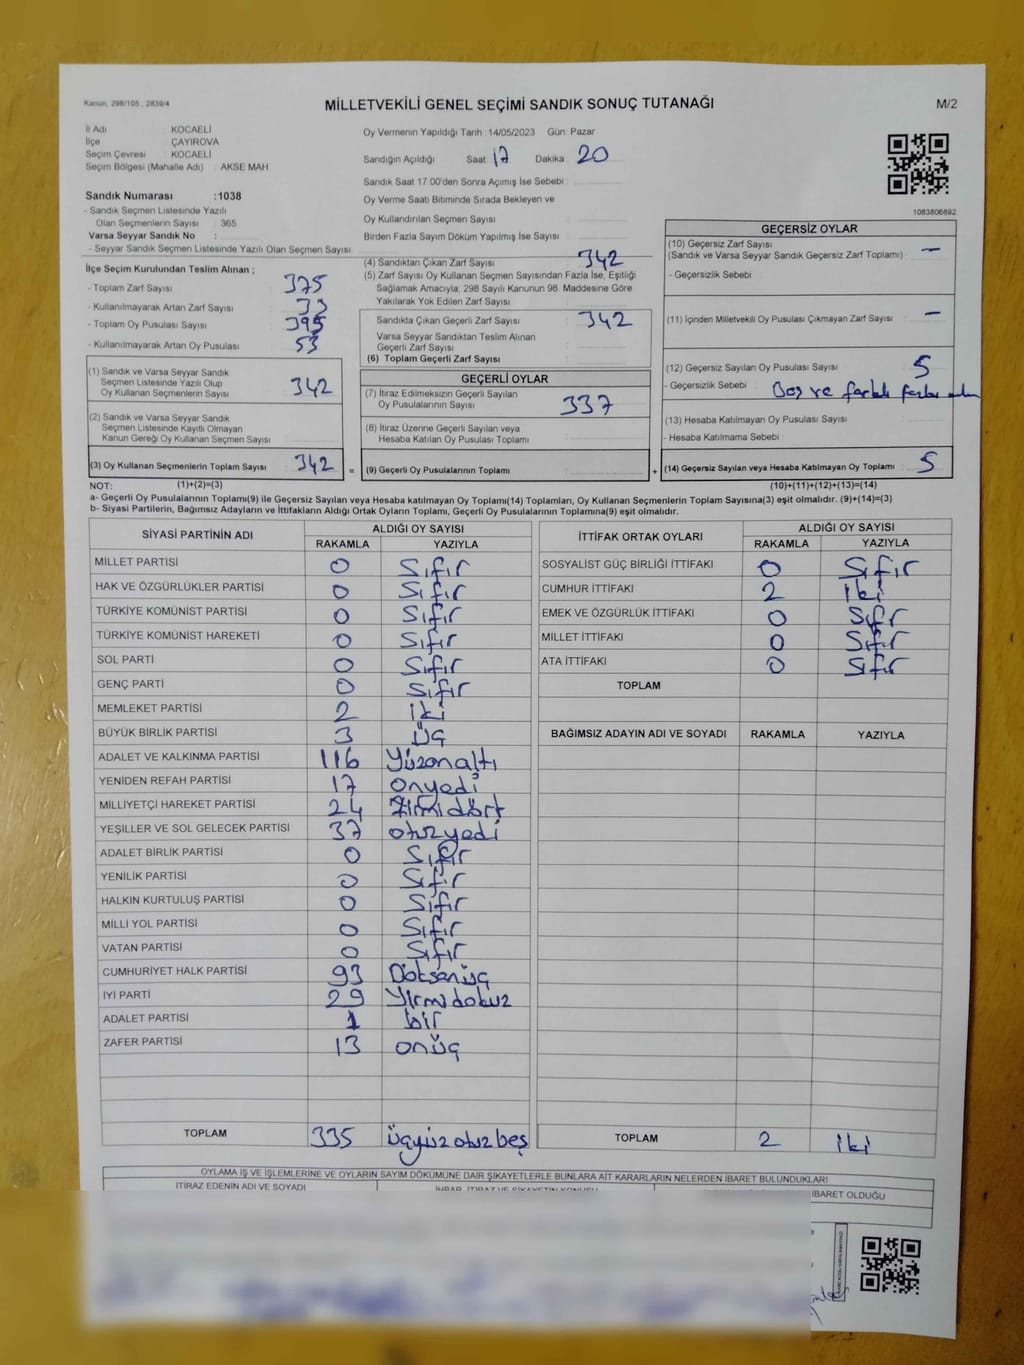 Kanun, 298/105 , 2839/4
MİLLETVEKİLİ GENEL SEÇİMİ SANDIK SONUÇ TUTANAĞI
M/2
İl Adı KOCAELİ
İlçe ÇAYIROVA
Seçim Çevresi KOCAELİ
Seçim Bölgesi (Mahalle Adı) : AKSE MAH
Sandık Numarası :1038
- Sandık Seçmen Listesinde Yazılı
Olan Seçmenlerin Sayısı : 365
Varsa Seyyar Sandık No :
- Seyyar Sandık Seçmen Listesinde Yazılı Olan Seçmen Sayısı
Oy Vermenin Yapıldığı Tarih :14/05/2023 Gün: Pazar
Sandığın Açıldığı Saat 17 Dakika 20
Sandık Saat 17:00'den Sonra Açımış İse Sebebi
Oy Verme Saati Bitiminde Sırada Bekleyen ve
Oy Kullandırılan Seçmen Sayısı
Birden Fazla Sayım Döküm Yapılmış İse Sayısı
1083806892
İlçe Seçim Kurulundan Teslim Alınan ;
- Toplam Zarf Sayısı 375
- Kullanılmayarak Artan Zarf Sayısı 33
- Toplam Oy Pusulası Sayısı 395
- Kullanılmayarak Artan Oy Pusulası 53
(1) Sandık ve Varsa Seyyar Sandık
Seçmen Listesinde Yazılı Olup
Oy Kullanan Seçmenlerin Sayısı 342
(2) Sandık ve Varsa Seyyar Sandık
Seçmen Listesinde Kayıtlı Olmayan
Kanun Gereği Oy Kullanan Seçmen Sayısı
(3) Oy Kullanan Seçmenlerin Toplam Sayısı 342 =
(4) Sandıktan Çıkan Zarf Sayısı 342
(5) Zarf Sayısı Oy Kullanan Seçmen Sayısından Fazla İse, Eşitliği
Sağlamak Amacıyla; 298 Sayılı Kanunun 98. Maddesine Göre
Yakılarak Yok Edilen Zarf Sayısı
Sandıkta Çıkan Geçerli Zarf Sayısı 342
Varsa Seyyar Sandıktan Teslim Alınan
Geçerli Zarf Sayısı
(6) Toplam Geçerli Zarf Sayısı
GEÇERLİ OYLAR
(7) İtiraz Edilmeksizin Geçerli Sayılan
Oy Pusulalarının Sayısı 337
(8) İtiraz Üzerine Geçerli Sayılan veya
Hesaba Katılan Oy Pusulası Toplamı
(9) Geçerli Oy Pusulalarının Toplamı +
GEÇERSİZ OYLAR
(10) Geçersiz Zarf Sayısı
(Sandık ve Varsa Seyyar Sandık Geçersiz Zarf Toplamı) : –
- Geçersizlik Sebebi
(11) İçinden Milletvekili Oy Pusulası Çıkmayan Zarf Sayısı –
(12) Geçersiz Sayılan Oy Pusulası Sayısı 5
- Geçersizlik Sebebi : Boş ve farklı
(13) Hesaba Katılmayan Oy Pusulası Sayısı
- Hesaba Katılmama Sebebi
(14) Geçersiz Sayılan veya Hesaba Katılmayan Oy Toplamı 5
NOT: (1)+(2)=(3) (10)+(11)+(12)+(13)=(14)
a- Geçerli Oy Pusulalarının Toplamı(9) ile Geçersiz Sayılan veya Hesaba katılmayan Oy Toplamı(14) Toplamları, Oy Kullanan Seçmenlerin Toplam Sayısına(3) eşit olmalıdır. (9)+(14)=(3)
b- Siyasi Partilerin, Bağımsız Adayların ve İttifakların Aldığı Ortak Oyların Toplamı, Geçerli Oy Pusulalarının Toplamına(9) eşit olmalıdır.
SİYASİ PARTİNİN ADI ALDIĞI OY SAYISI
RAKAMLA YAZIYLA
MİLLET PARTİSİ 0 Sıfır
HAK VE ÖZGÜRLÜKLER PARTİSİ 0 Sıfır
TÜRKİYE KOMÜNİST PARTİSİ 0 Sıfır
TÜRKİYE KOMÜNİST HAREKETİ 0 Sıfır
SOL PARTİ 0 Sıfır
GENÇ PARTİ 0 Sıfır
MEMLEKET PARTİSİ 2 iki
BÜYÜK BİRLİK PARTİSİ 3 üç
ADALET VE KALKINMA PARTİSİ 116 Yüzonaltı
YENİDEN REFAH PARTİSİ 17 onyedi
MİLLİYETÇİ HAREKET PARTİSİ 24 Yirmidört
YEŞİLLER VE SOL GELECEK PARTİSİ 37 otuzyedi
ADALET BİRLİK PARTİSİ 0 Sıfır
YENİLİK PARTİSİ 0 Sıfır
HALKIN KURTULUŞ PARTİSİ 0 Sıfır
MİLLİ YOL PARTİSİ 0 Sıfır
VATAN PARTİSİ 0 Sıfır
CUMHURİYET HALK PARTİSİ 93 Doksanüç
İYİ PARTİ 29 Yirmidokuz
ADALET PARTİSİ 1 bir
ZAFER PARTİSİ 13 onüç
TOPLAM 335 üçyüzotuzbeş
İTTİFAK ORTAK OYLARI ALDIĞI OY SAYISI
RAKAMLA YAZIYLA
SOSYALİST GÜÇ BİRLİĞİ İTTİFAKI 0 Sıfır
CUMHUR İTTİFAKI 2 iki
EMEK VE ÖZGÜRLÜK İTTİFAKI 0 Sıfır
MİLLET İTTİFAKI 0 Sıfır
ATA İTTİFAKI 0 Sıfır
TOPLAM
BAĞIMSIZ ADAYIN ADI VE SOYADI RAKAMLA YAZIYLA
TOPLAM 2 iki
OYLAMA İŞ VE İŞLEMLERİNE VE OYLARIN SAYIM DÖKÜMÜNE DAİR ŞİKAYETLERLE BUNLARA AİT KARARLARIN NELERDEN İBARET BULUNDUKLARI
İTİRAZ EDENİN ADI VE SOYADI
İBARET OLDUĞU